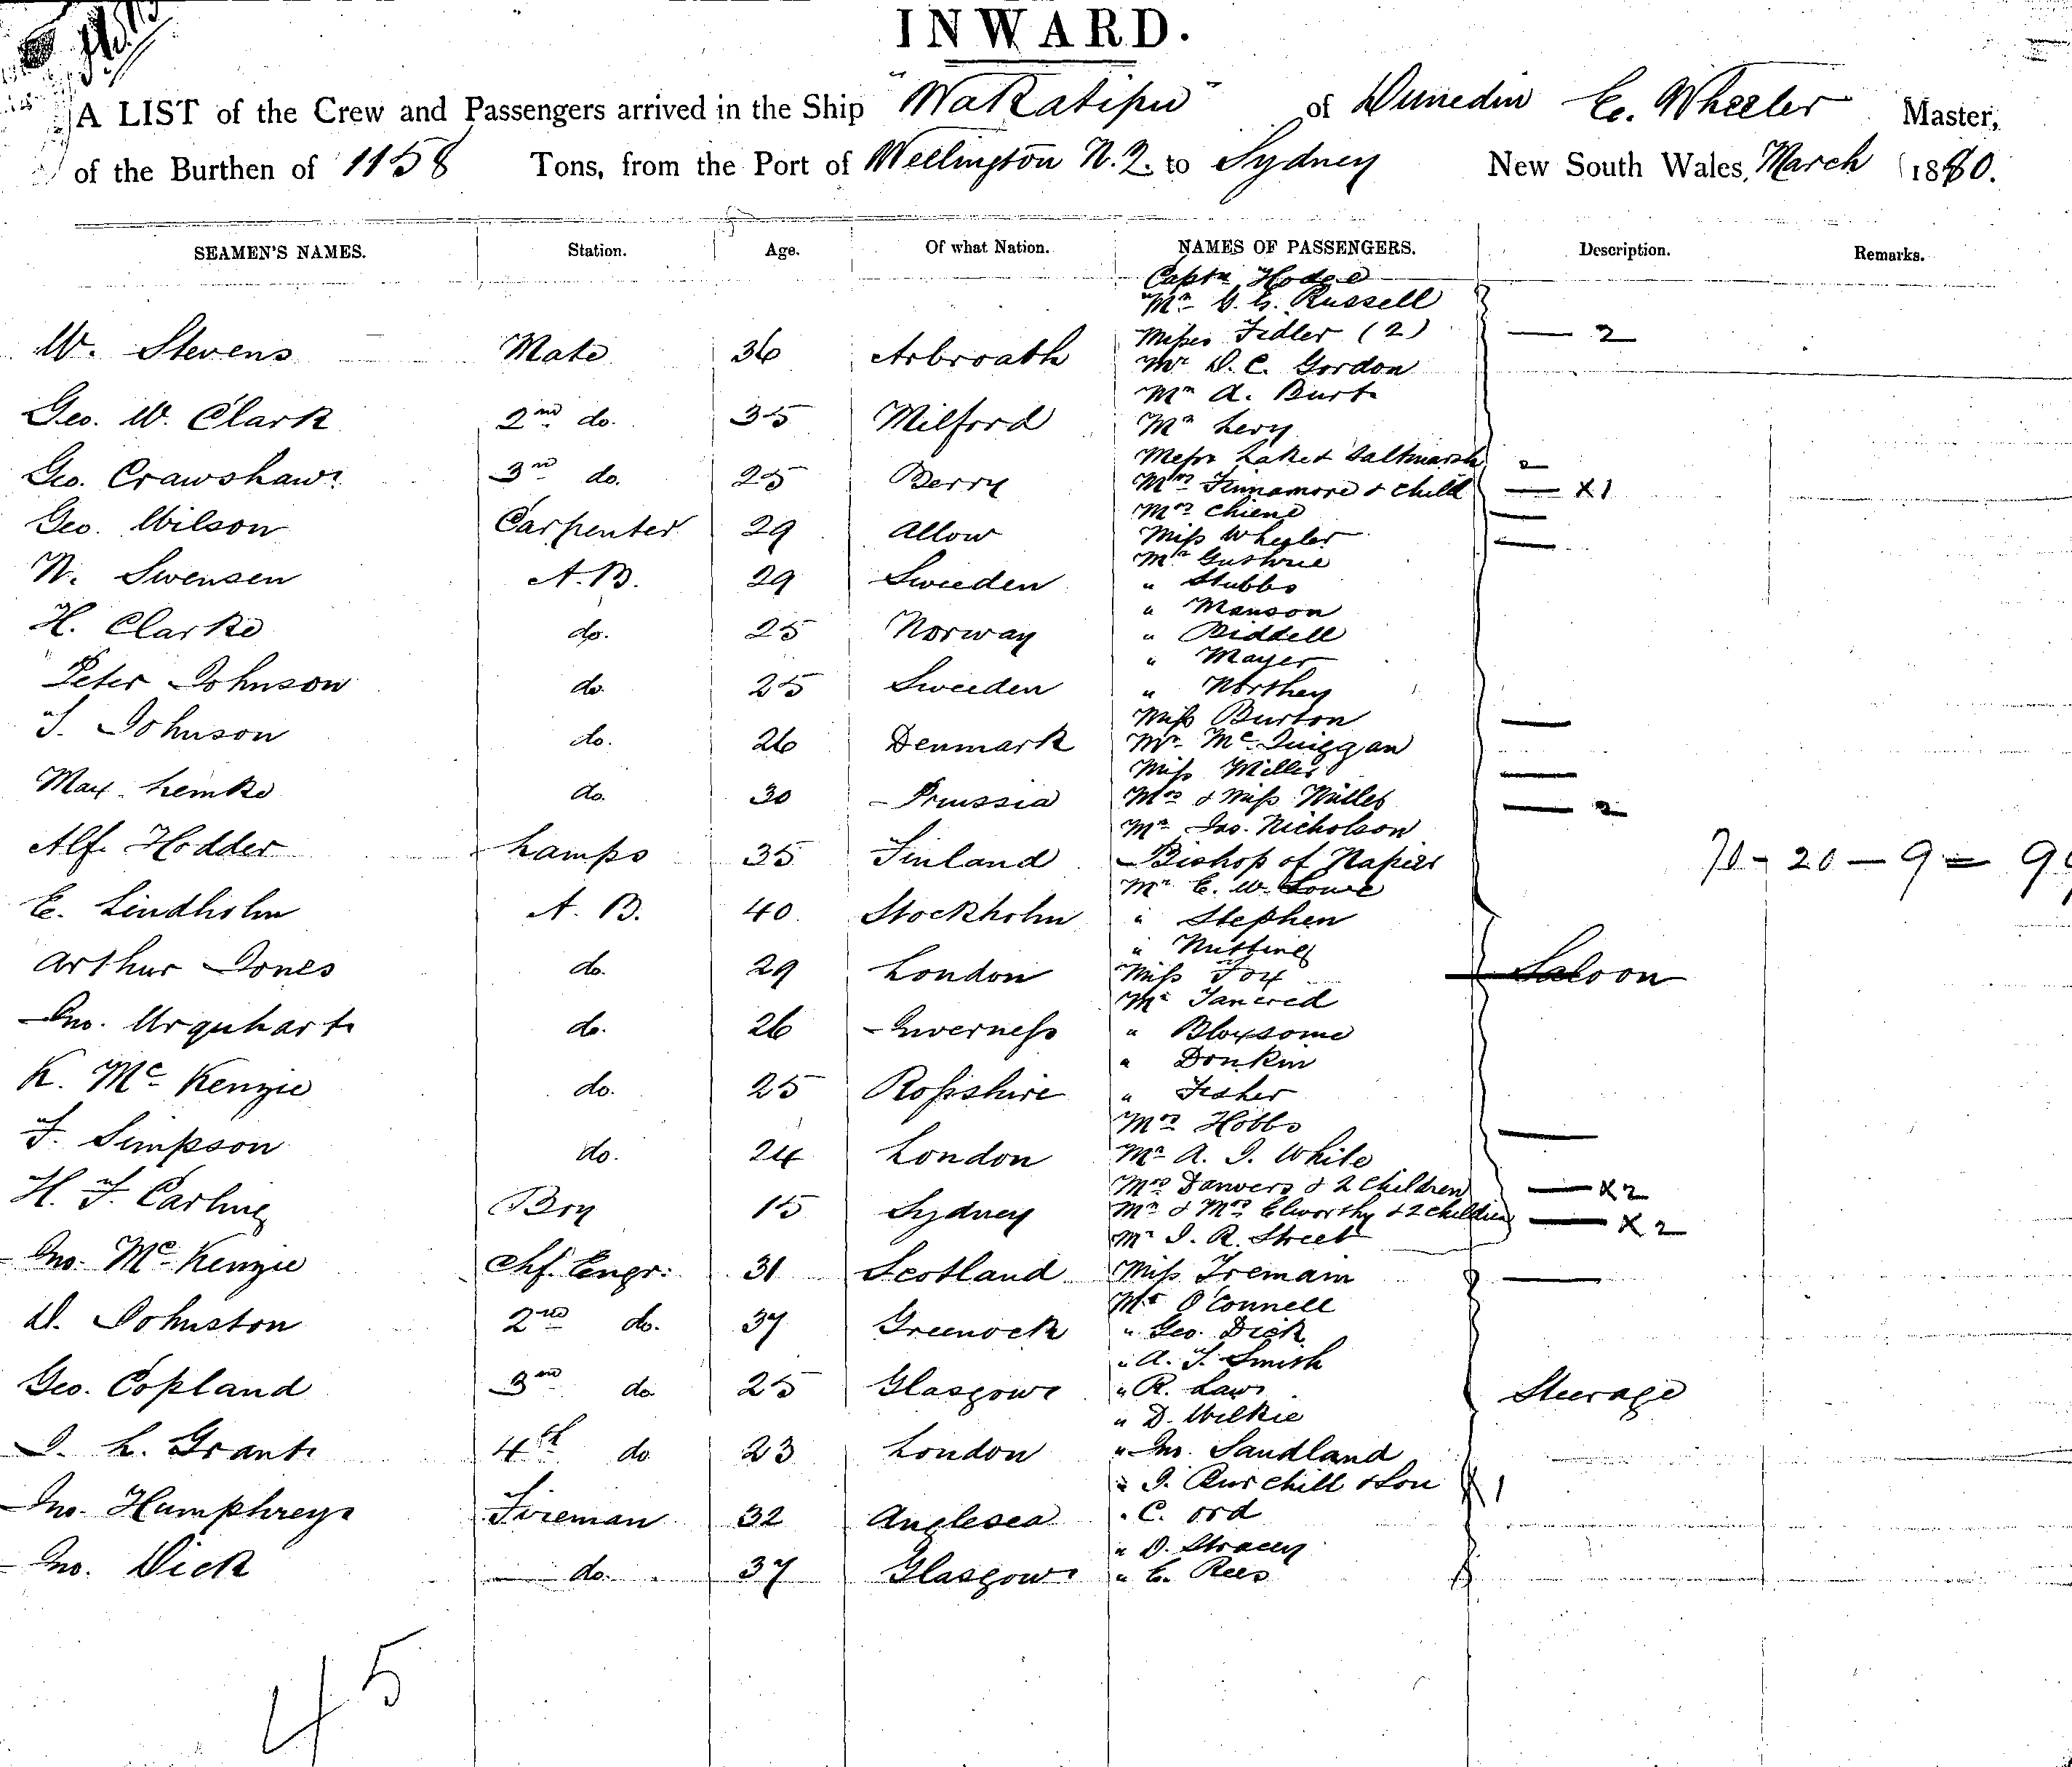 INWARD.
A LIST of the Crew and Passengers arrived in the Ship "Wakatipu" of Dunedin E. Wheeler Master,
of the Burthen of 1158 Tons, from the Port of Wellington N.Z. to Sydney New South Wales, March 1880.
SEAMEN'S NAMES. Station. Age. Of what Nation. NAMES OF PASSENGERS. Description. Remarks.
Captn Hodge
Mr Russell
W. Stevens Mate 36 Arbroath Misses Fidler (2) — 2
Mr D. C. Gordon
Mr A. Burt
Geo. W. Clark 2nd do. 35 Milford Mr Levy
Messrs Lake & Saltmarsh 2
Geo. Crawshaw 3rd do. 25 Berry Mrs Finnamore & child — X1
Mrs Chiene —
Geo. Wilson Carpenter 29 Allow Miss Wheeler —
Mr Guthrie
N. Swensen A.B. 29 Sweeden " Stubbs
" Manson
H. Clarke do. 25 Norway " Biddell
" Mayer
Peter Johnson do. 25 Sweeden " Northey
Miss Burton —
J. Johnson do. 26 Denmark Mr McQuiggan
Miss Miller —
Max Lemke do. 30 Prussia Mrs & Miss Millet — 2
Mr Jas. Nicholson
Alf. Hodder Lamps 35 Finland Bishop of Napier 70 - 20 - 9 = 99
Mr E. W. Lowe
E. Lindholm A.B. 40 Stockholm " Stephen
" Nutting
Arthur Jones do. 29 London Miss Fox — Saloon
Mr Tancred
Jno. Urquhart do. 26 Inverness " Bloxsome
" Donkin
K. McKenzie do. 25 Rosshire " Fisher
Mrs Hobbs —
F. Simpson do. 24 London Mr A. J. White
Mrs Danvers & 2 Children — X2
H. F. Carling Boy 15 Sydney Mr & Mrs Elworthy & 2 Children — X2
Mr J. R. Street
Jno. McKenzie Chf. Engr. 31 Scotland Miss Tremain —
Mr O'Connell
D. Johnston 2nd do. 37 Greenock " Geo. Dick
" A. J. Smith
Geo. Copland 3rd do. 25 Glasgow " R. Law Steerage
" D. Wilkie
J. L. Grant 4th do 23 London " Jno. Sandland
" J. Churchill & Son X1
Jno. Humphreys Fireman 32 Anglesea " C. Ord
" D. Stracey
Jno. Dick do. 37 Glasgow " E. Rees
45